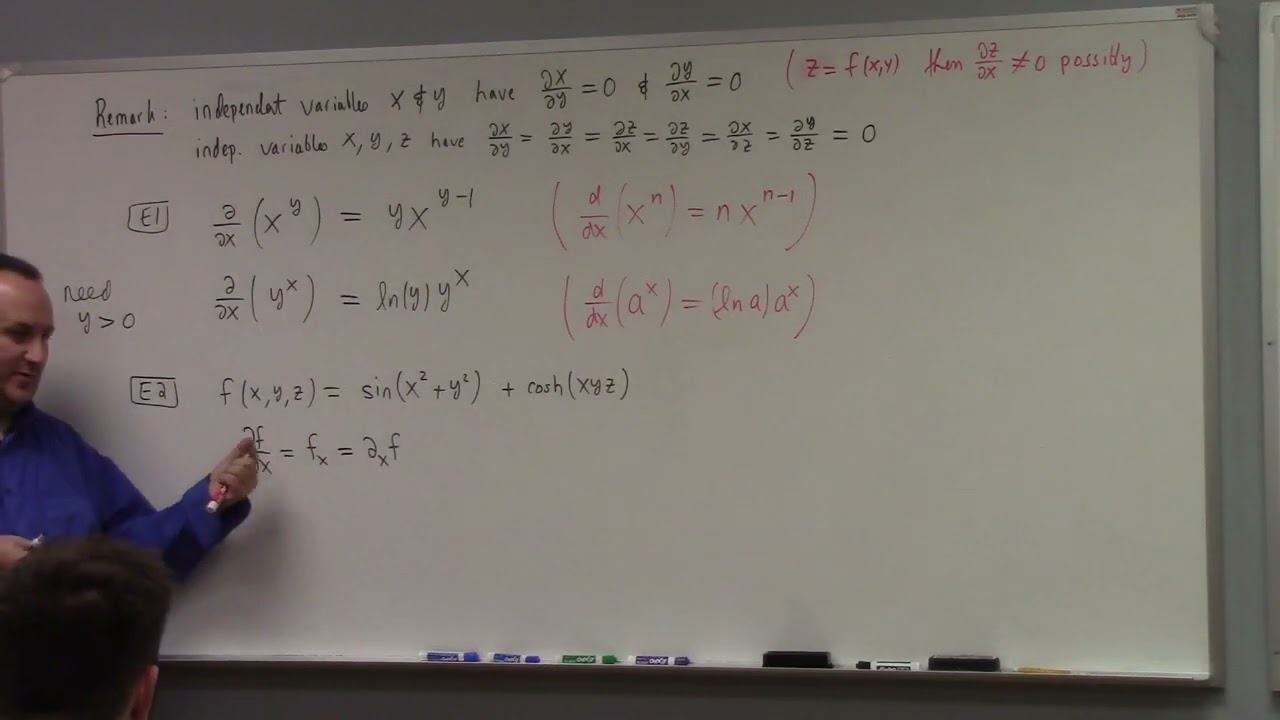 Remark: independat variables x & y have ∂x/∂y = 0 & ∂y/∂x = 0 (z = f(x,y) then ∂z/∂x ≠ 0 possibly)
indep. variables x, y, z have ∂x/∂y = ∂y/∂x = ∂z/∂x = ∂z/∂y = ∂x/∂z = ∂y/∂z = 0
E1 ∂/∂x (x^y) = y x^(y-1) ( d/dx (x^n) = n x^(n-1) )
need
y > 0
∂/∂x (y^x) = ln(y) y^x ( d/dx (a^x) = (ln a) a^x )
E2 f(x,y,z) = sin(x² + y²) + cosh(xyz)
∂f/∂x = f_x = ∂_x f